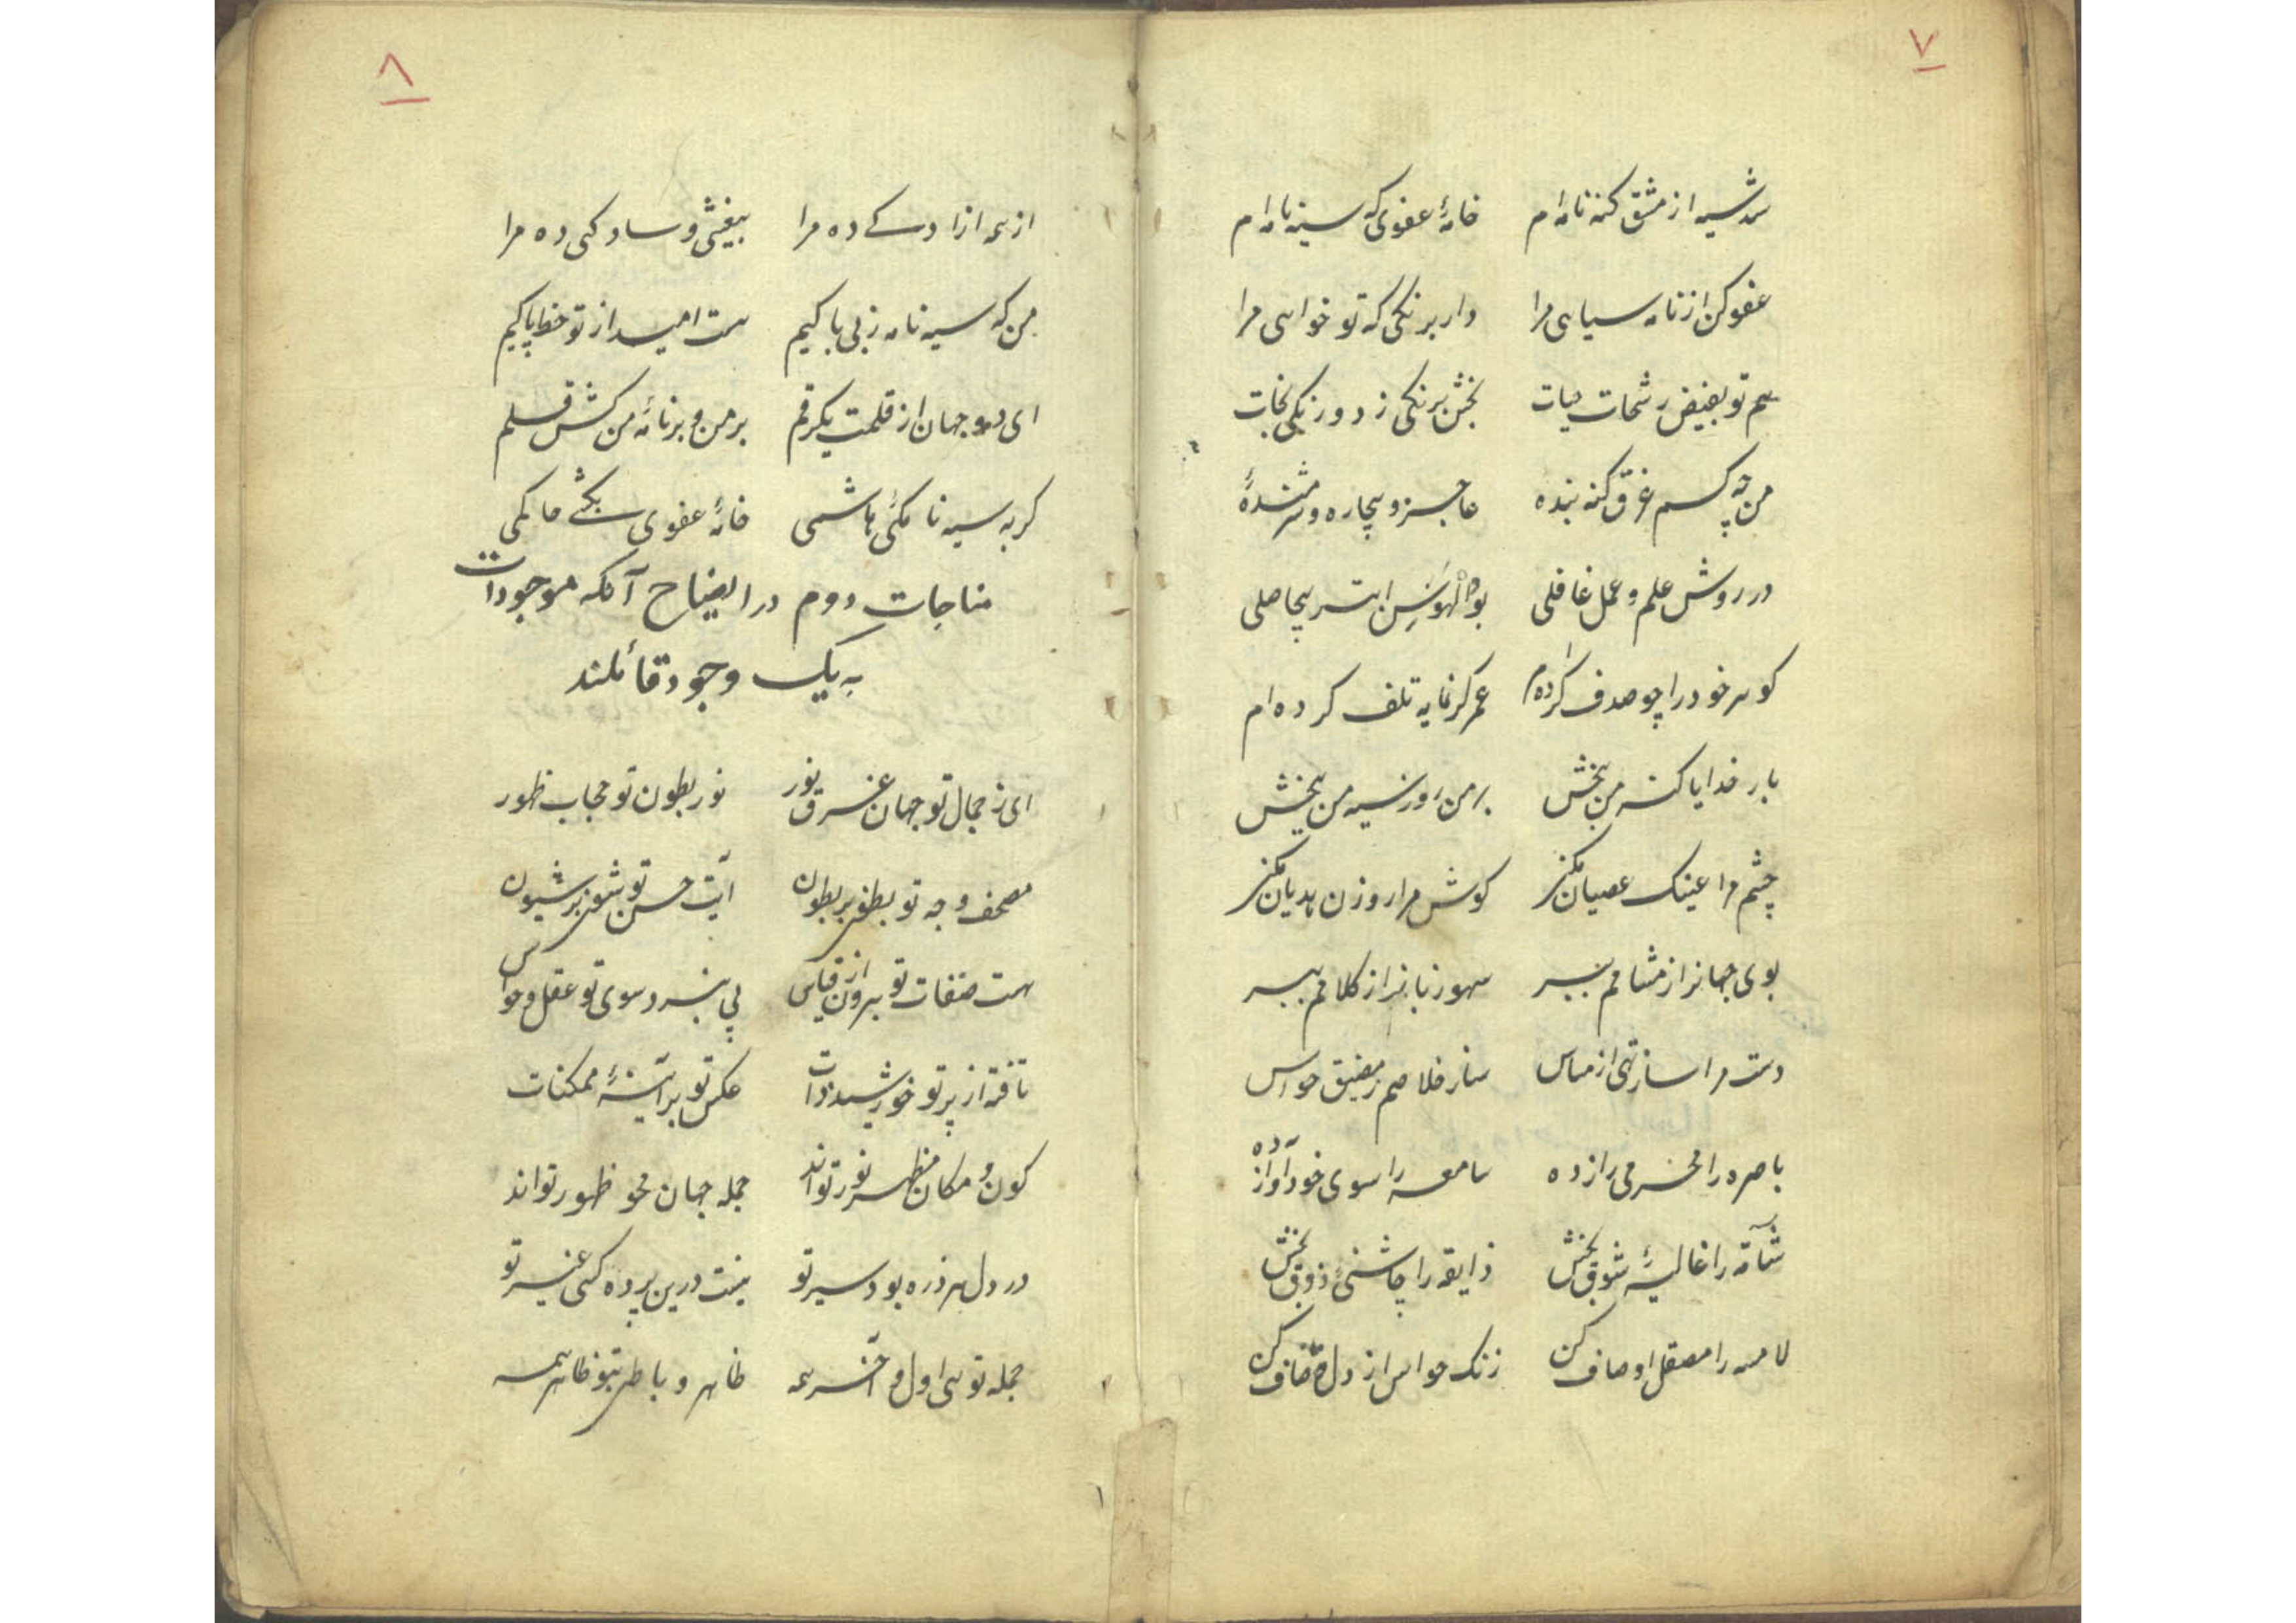 ۷
شد سیه از مشق کنه نامه ام خامهٔ عفوی که سیه نامه ام
عفو کن از نامه سیاهی مرا دار برنکی که تو خواهی مرا
هم تو بفیض رشحات حیات بخش برنکی ز دو رنکی نجات
من چه کسم غرق کنه بنده عاجز و بیچاره و شرمندهٔ
در روش علم و عمل غافلی بوالهوسن ابتر بیحاصلی
کوهر خود را چو صدف کرده ام عمر کرنمایه تلف کرده ام
بار خدایا کنه من ببخش بر من و روز سیه من ببخش
چشم مرا عینک عصیان مکن کوش مرا روزن هذیان مکن
بوی جهانرا ز مشامم ببر سهو زبانرا ز کلامم ببر
دست مرا ساز تهی از مساس ساز خلاصم ز مضیق حواس
باصره را محرمی راز ده سامعه را سوی خود آواز ده
شامّه را غالیهٔ شوق بخش ذایقه را چاشنی ذوق بخش
لامسه را مصقل اوصاف کن زنک حواس از دل صاف کن
۸
از همه ازادکے ده مرا بیغشی و سادکی ده مرا
من که سیه نامه ز بی باکیم هست امید از تو خط پاکیم
ای دو جهان از قلمت یکرقم بر من و بر نامهٔ من کش قلم
کر به سیه نامکی باشمی خامهٔ عفوی بکشے حاکمی
مناجات دوم در ایضاح آنکه موجودات
به یک وجود قائلند
ای ز جمال تو جهان غرق نور نور بطون تو حجاب ظهور
مصحف وجه تو بطون بر بطون آیت حسن تو شون بر شیون
هست صفات تو برون از قیاس پی نبرد سوی تو عقل و حواس
تافته از پرتو خورشید ذات عکس تو بر آینهٔ ممکنات
کون و مکان مظهر نور تواند جمله جهان محو ظهور تواند
در دل هر ذره بود سیر تو نیست درین پرده کسی غیر تو
جمله تویی اول و آخر همه ظاهر و باطن بتو ظاهر همه